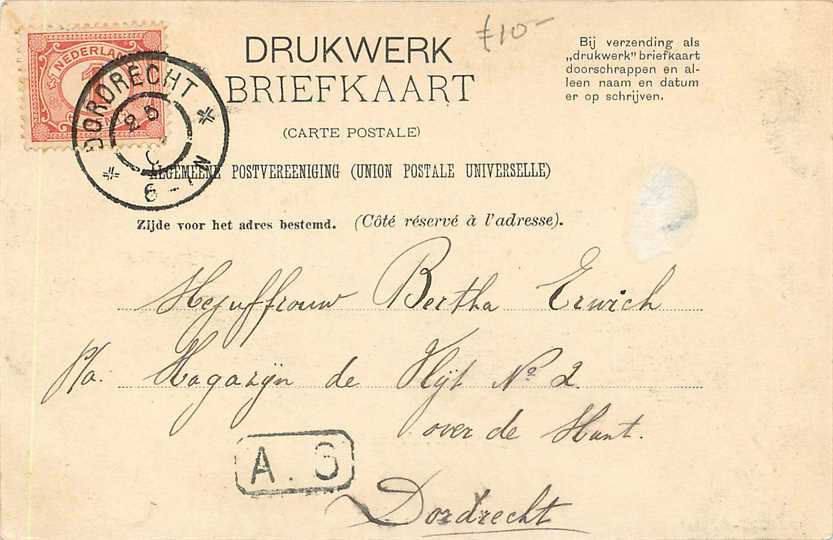 ƒ10-
DRUKWERK
BRIEFKAART
(CARTE POSTALE)
ALGEMEENE POSTVEREENIGING (UNION POSTALE UNIVERSELLE)
Zijde voor het adres bestemd. (Côté réservé à l'adresse).
Bij verzending als
„drukwerk" briefkaart
doorschrappen en al-
leen naam en datum
er op schrijven.
NEDERLAND
1
DORDRECHT
6-7N
Mejuffrouw Bertha Erwich
p/a. Magazijn de Vlijt No 2
over de Munt.
A. 3
Dordrecht